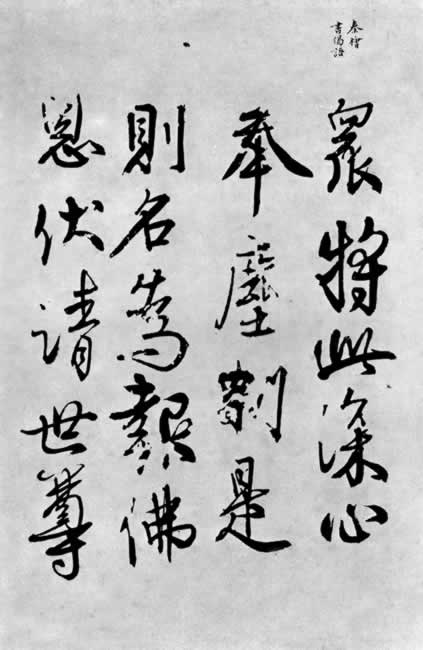 秦檜
書偈語
衆將此深心
奉塵剎是
則名為報佛
恩伏請世尊